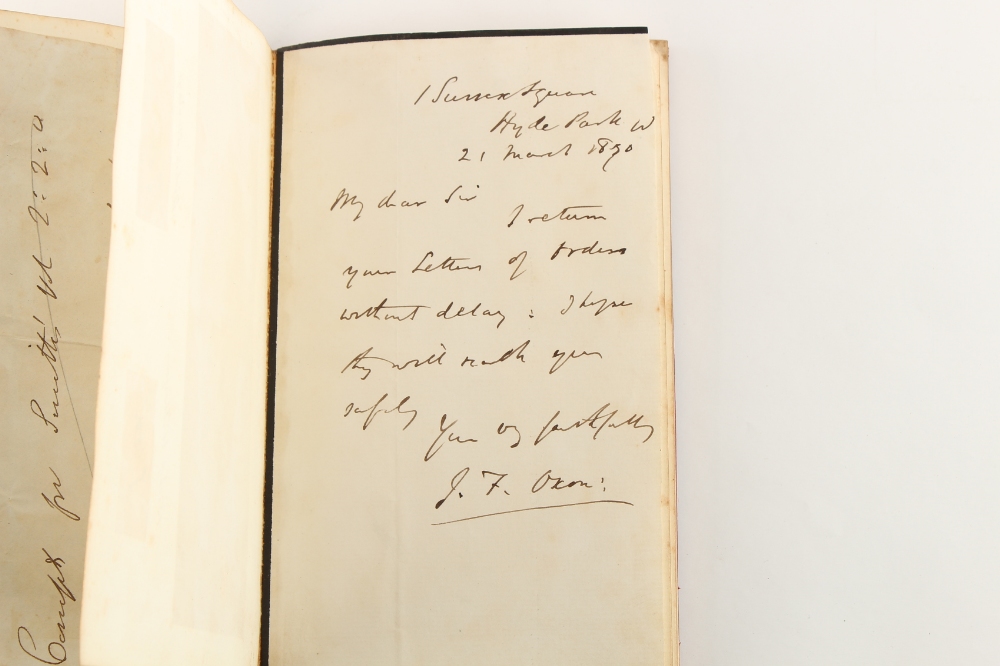 1 Sussex Square
Hyde Park W
21 March 1870
My dear Sir
I return
your Letters of Orders
without delay : I hope
they will reach you
safely
Your vy faithfully
J. F. Oxon:
for Smith's Yd 2 : 2 : 0